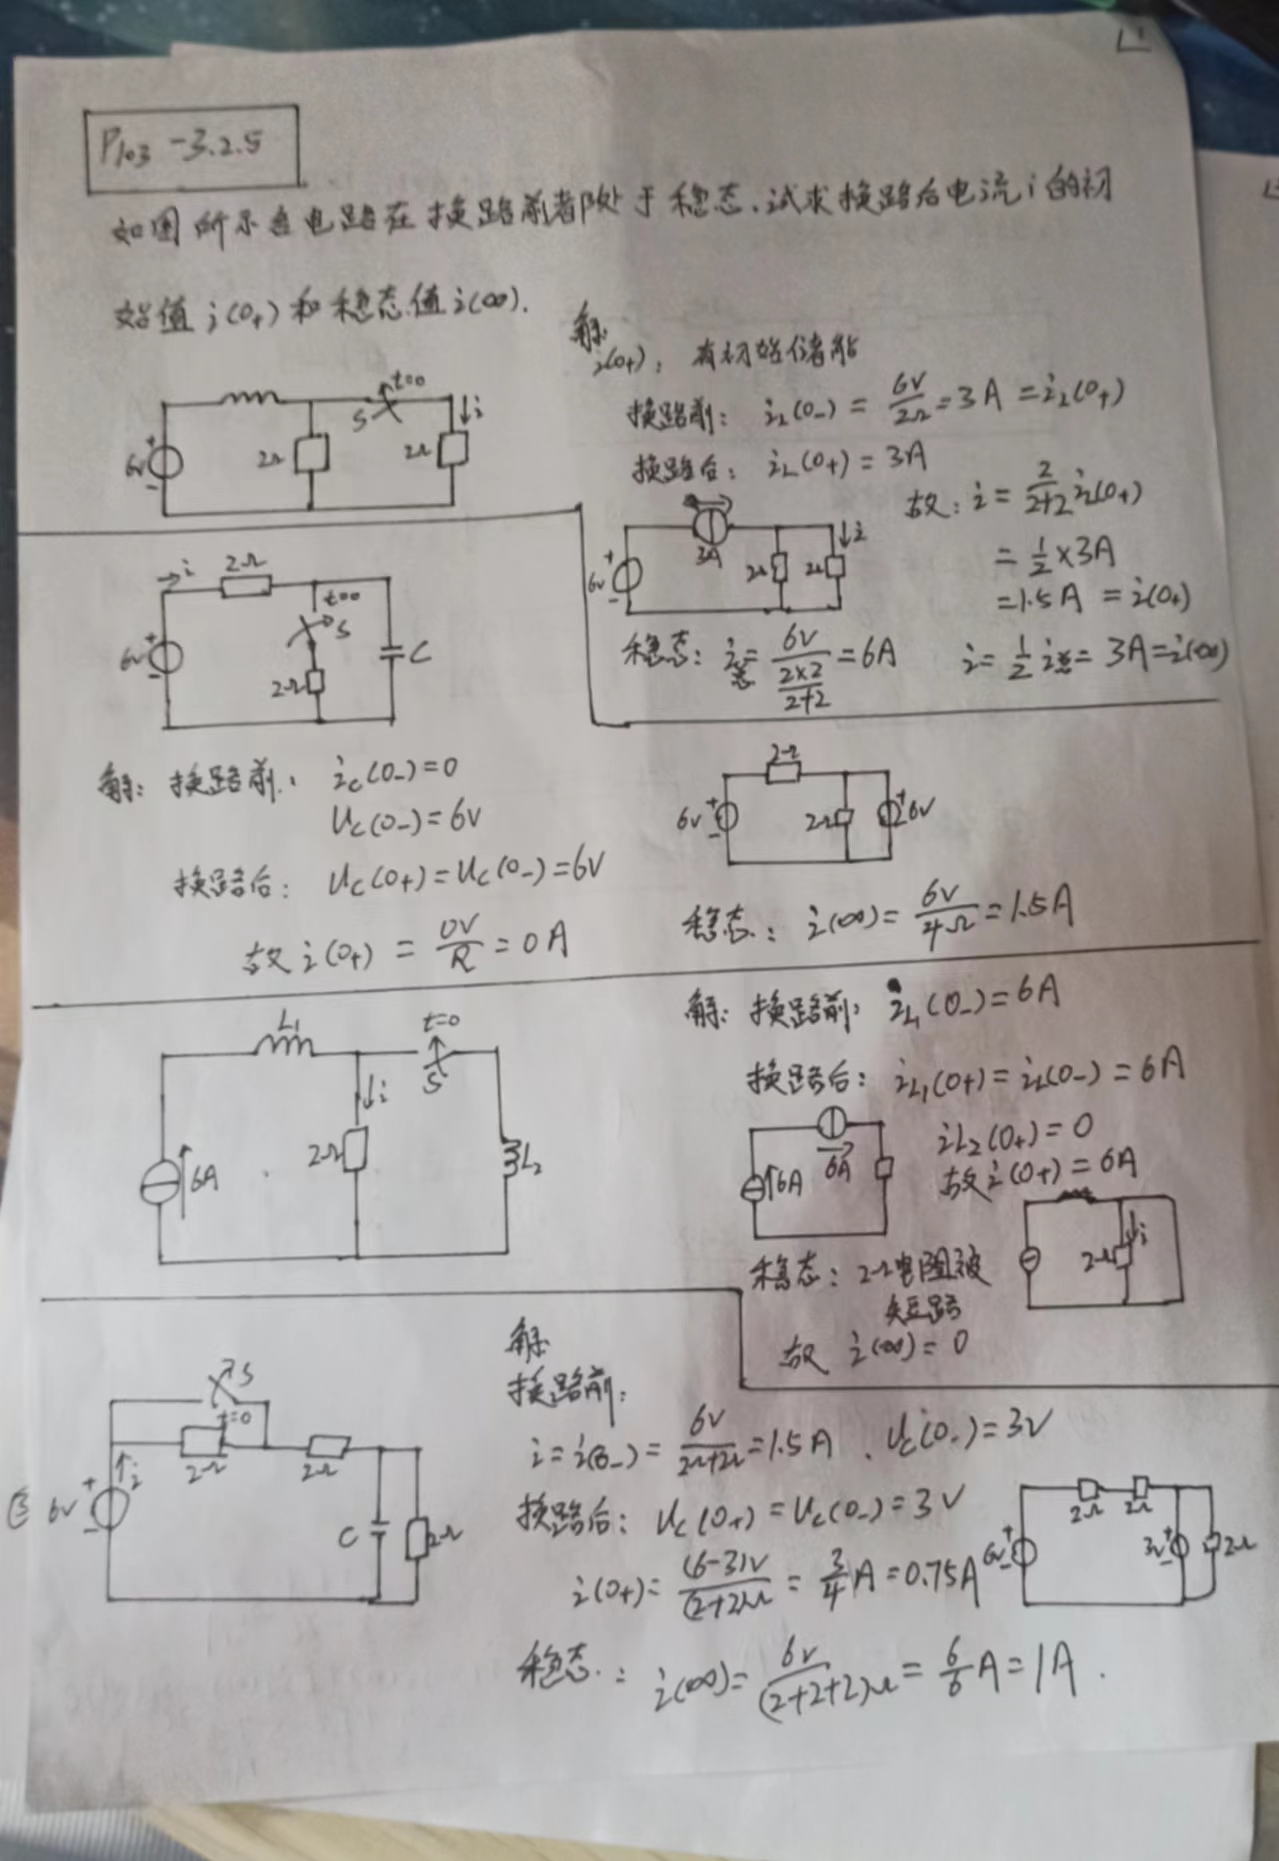 P103 -3.2.5
如图所示各电路在换路前都处于稳态.试求换路后电流i的初
始值i(0+)和稳态值i(∞).
解
i(0+),有初始储能
换路前: iL(0-) = 6V/2Ω = 3A = iL(0+)
换路后: iL(0+) = 3A
故: i = 2/(2+2) iL(0+)
= 1/2 × 3A
= 1.5A = i(0+)
稳态: i总 = 6V/((2×2)/(2+2)) = 6A i = 1/2 i总 = 3A = i(∞)
t=0
S
i
6V
2Ω
2Ω
6V
3A
2Ω
2Ω
i
i
2Ω
t=0
S
6V
2Ω
C
解: 换路前: ic(0-)=0
Uc(0-)=6V
换路后: Uc(0+)=Uc(0-)=6V
故 i(0+) = 0V/R = 0A
2Ω
6V
2Ω
6V
稳态: i(∞) = 6V/4Ω = 1.5A
L1
t=0
S
i
6A
2Ω
L2
解: 换路前: iL1(0-)=6A
换路后: iL1(0+)=iL(0-)=6A
iL2(0+)=0
故 i(0+)=6A
6A
6A
稳态: 2Ω电阻被
短路
故 i(∞)=0
2Ω
i
S
t=0
2Ω
2Ω
6V
i
C
2Ω
解
换路前:
i=i(0-)=6V/(2Ω+2Ω)=1.5A . Uc(0-)=3V
换路后: Uc(0+)=Uc(0-)=3V
i(0+)=(6-3)V/(2+2)Ω=3/4A=0.75A
2Ω
2Ω
6V
3V
2Ω
稳态: i(∞)=6V/(2+2+2)Ω=6/6A=1A.